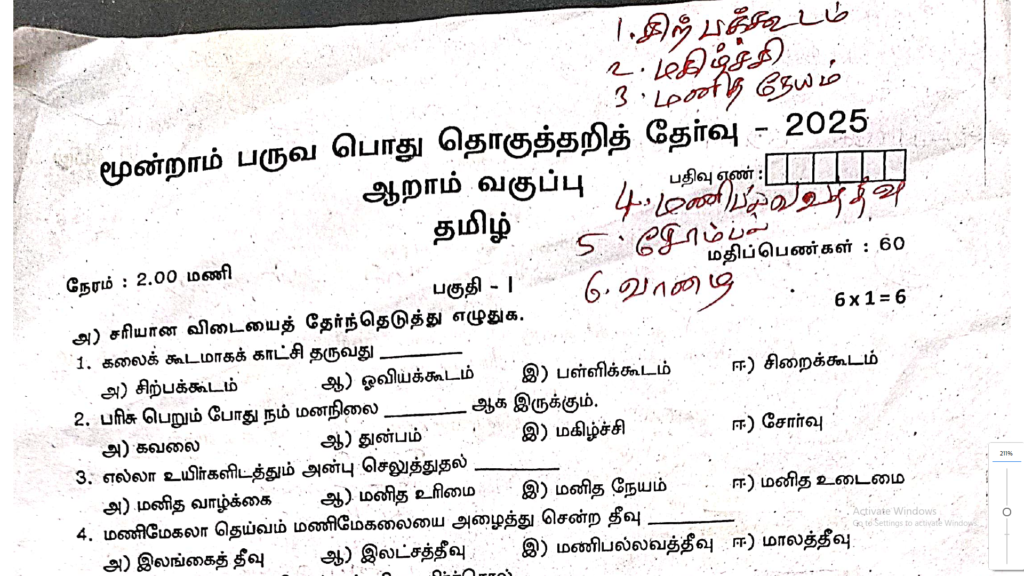 1. சிற்பக்கூடம்
2. மகிழ்ச்சி
3. மனித நேயம்
மூன்றாம் பருவ பொது தொகுத்தறித் தேர்வு - 2025
ஆறாம் வகுப்பு
பதிவு எண் :
தமிழ்
4. மணிபல்லவத்தீவு
5. சோம்பல்
நேரம் : 2.00 மணி
மதிப்பெண்கள் : 60
பகுதி - I
6.
அ) சரியான விடையைத் தேர்ந்தெடுத்து எழுதுக.
6 x 1 = 6
1. கலைக் கூடமாகக் காட்சி தருவது ________
அ) சிற்பக்கூடம் ஆ) ஓவியக்கூடம் இ) பள்ளிக்கூடம் ஈ) சிறைக்கூடம்
2. பரிசு பெறும் போது நம் மனநிலை ________ ஆக இருக்கும்.
அ) கவலை ஆ) துன்பம் இ) மகிழ்ச்சி ஈ) சோர்வு
3. எல்லா உயிர்களிடத்தும் அன்பு செலுத்துதல் ________
அ) மனித வாழ்க்கை ஆ) மனித உரிமை இ) மனித நேயம் ஈ) மனித உடைமை
4. மணிமேகலா தெய்வம் மணிமேகலையை அழைத்து சென்ற தீவு ________
அ) இலங்கைத் தீவு ஆ) இலட்சத்தீவு இ) மணிபல்லவத்தீவு ஈ) மாலத்தீவு
211%
Activate Windows
Go to Settings to activate Windows.